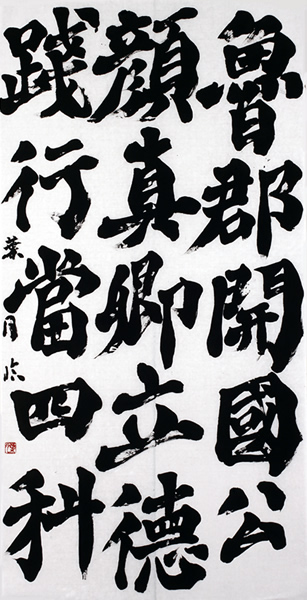 魯郡開國公
顔真卿立德
踐行當四科
葉月臨